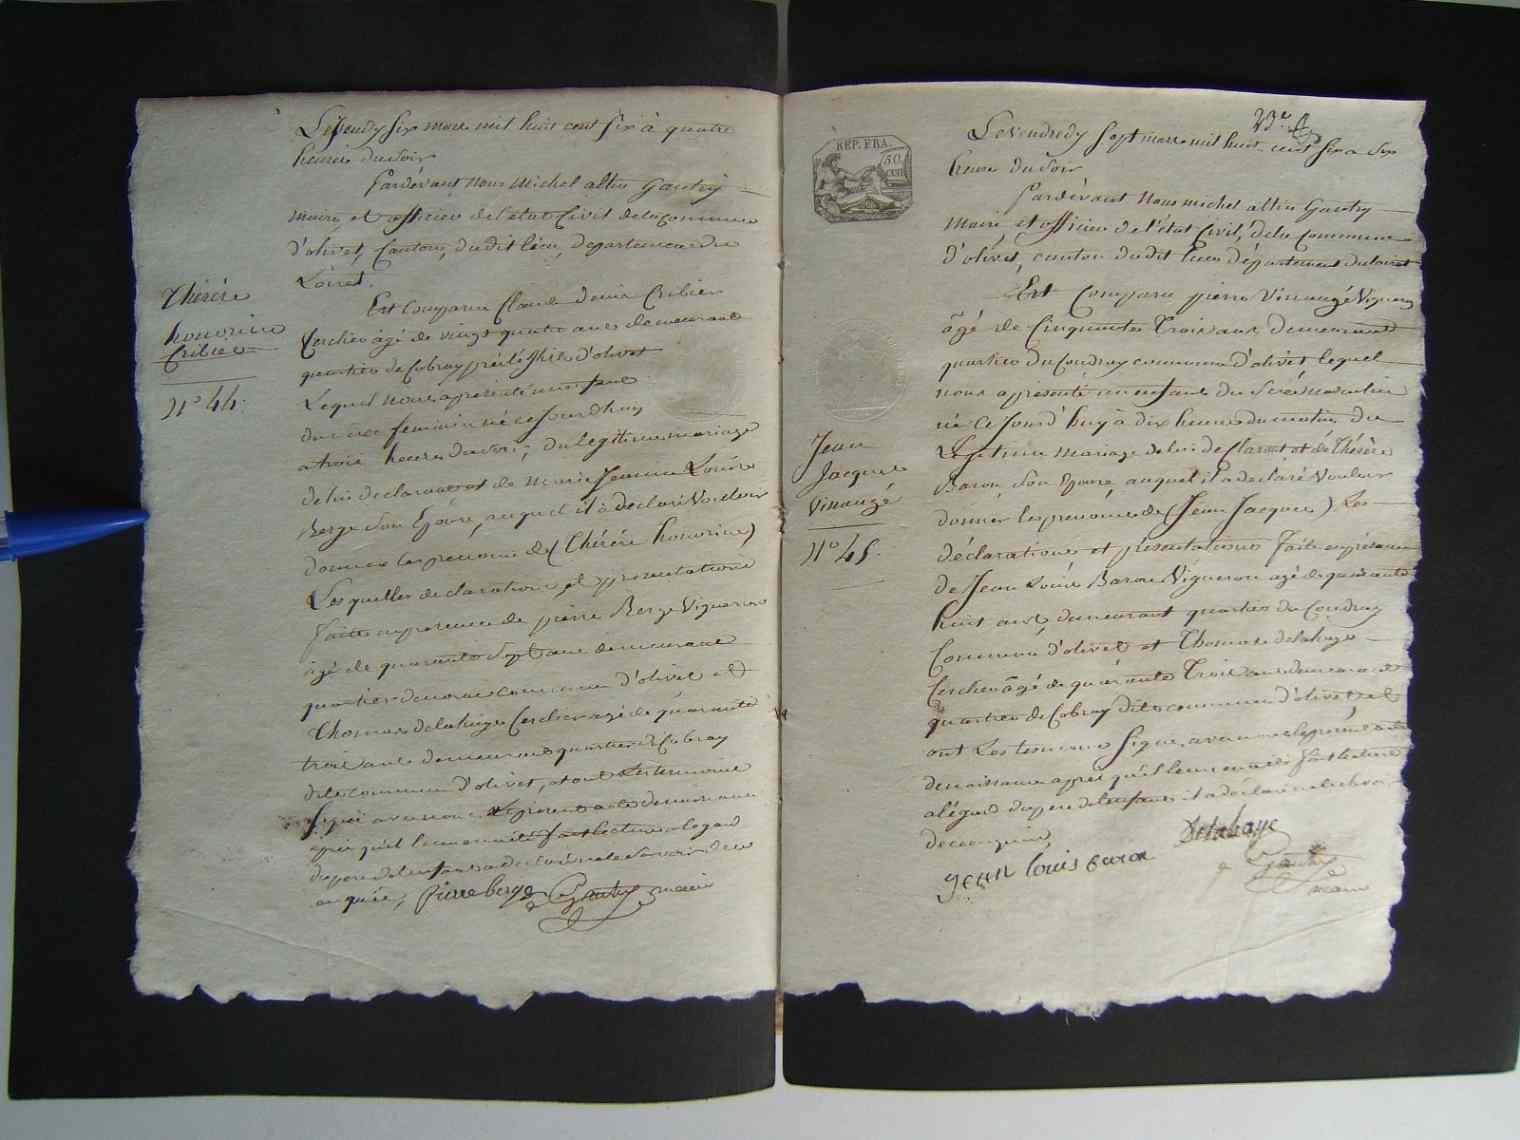 Le Jeudy six mars mil huit cent six à quatre
heures du soir
Pardevant nous Michel altin Gautry
maire et officier de l'état Civil de la commune
d'olivet, Canton, du dit lieu, departement du
Loiret.
Est Comparu Claude denis Cribier
Cerclier âgé de vingt quatre ans demeurant
quartier de Cobray d'olivet
Lequel nous a présenté un enfant
du sexe feminin né ce Jourdhuy
a trois heures du soir, du legitime mariage
de lui declarant et de Marie Jeanne Louise
Berge son Epouse, auquel il a declaré Vouloir
donner les prenoms de (Thérése honorine)
Les quelles declaration et presentation
faite en presence de pierre Berge Vigneron
âgé de quarante sept ans demeurant
quartier commune d'olivet et
Thomas delahaye Cerclier agé de quarante
trois ans demeurant quartier de Cobray
dite commune d'olivet, et ont Les temoins
signé avec nous Le present acte de naissance
apres qu'il leur en a été fait lecture a legard
du pere de lenfant a declaré ne le savoir de ce
enquis, Pierre berge Gautry maire
Thérése
honorine
Cribier
N° 44.
REP. FRA.
50
CEN
Le Vendredy sept mars mil huit cent six a six
heure du soir
Pardevant Nous michel altin Gautry
Maire et officier de l'état Civil, de la Commune
d'olivet, canton du dit lieu département du Loiret
Est Comparu pierre Vinauzé Vigneron
âgé de Cinquante Trois ans demeurant
quartier du Coudray commune d'olivet lequel
nous a presenté un enfant du Sexe masculin
né Ce Jourd'huy à dix heures du matin du
Légitime mariage de lui de Clarant et de Thérèse
Baron, son Epouse, auquel il a declaré Vouloir
donner les prenoms de (Jean Jacques) Les
déclarations et présentations faite en présence
de Jean Louis Baron Vigneron agé de quarante
huit ans, demeurant quartier du Coudray
Commune d'olivet et Thomas delahaye
Cerclier âgé de quarante Trois ans demeurant
quartier de Cobray dite commune d'olivet, et
ont Les temoins signé avec nous le present acte
de naissance apres qu'il leur en a été fait lecture
a légard du pere de lenfant il a déclaré ne le savoir
de ce enquis,
Delahaye
jean louis baron
Gautry
maire
Jean
Jacques
Vinauzé
N° 45.